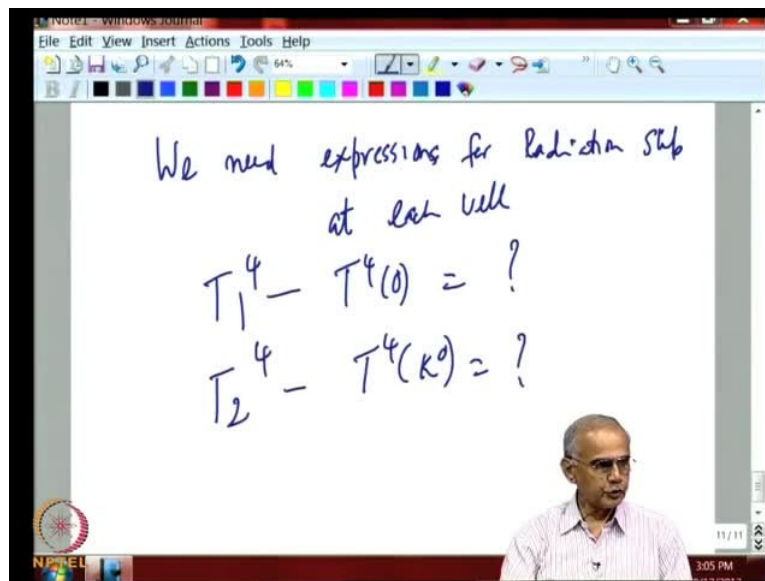 Note1 - Windows Journal
File Edit View Insert Actions Tools Help
64%
B I
We need expressions for Radiation Slip
at each Wall
T₁⁴ - T⁴(0) = ?
T₂⁴ - T⁴(K⁰) = ?
11/11
NPTEL
3:05 PM